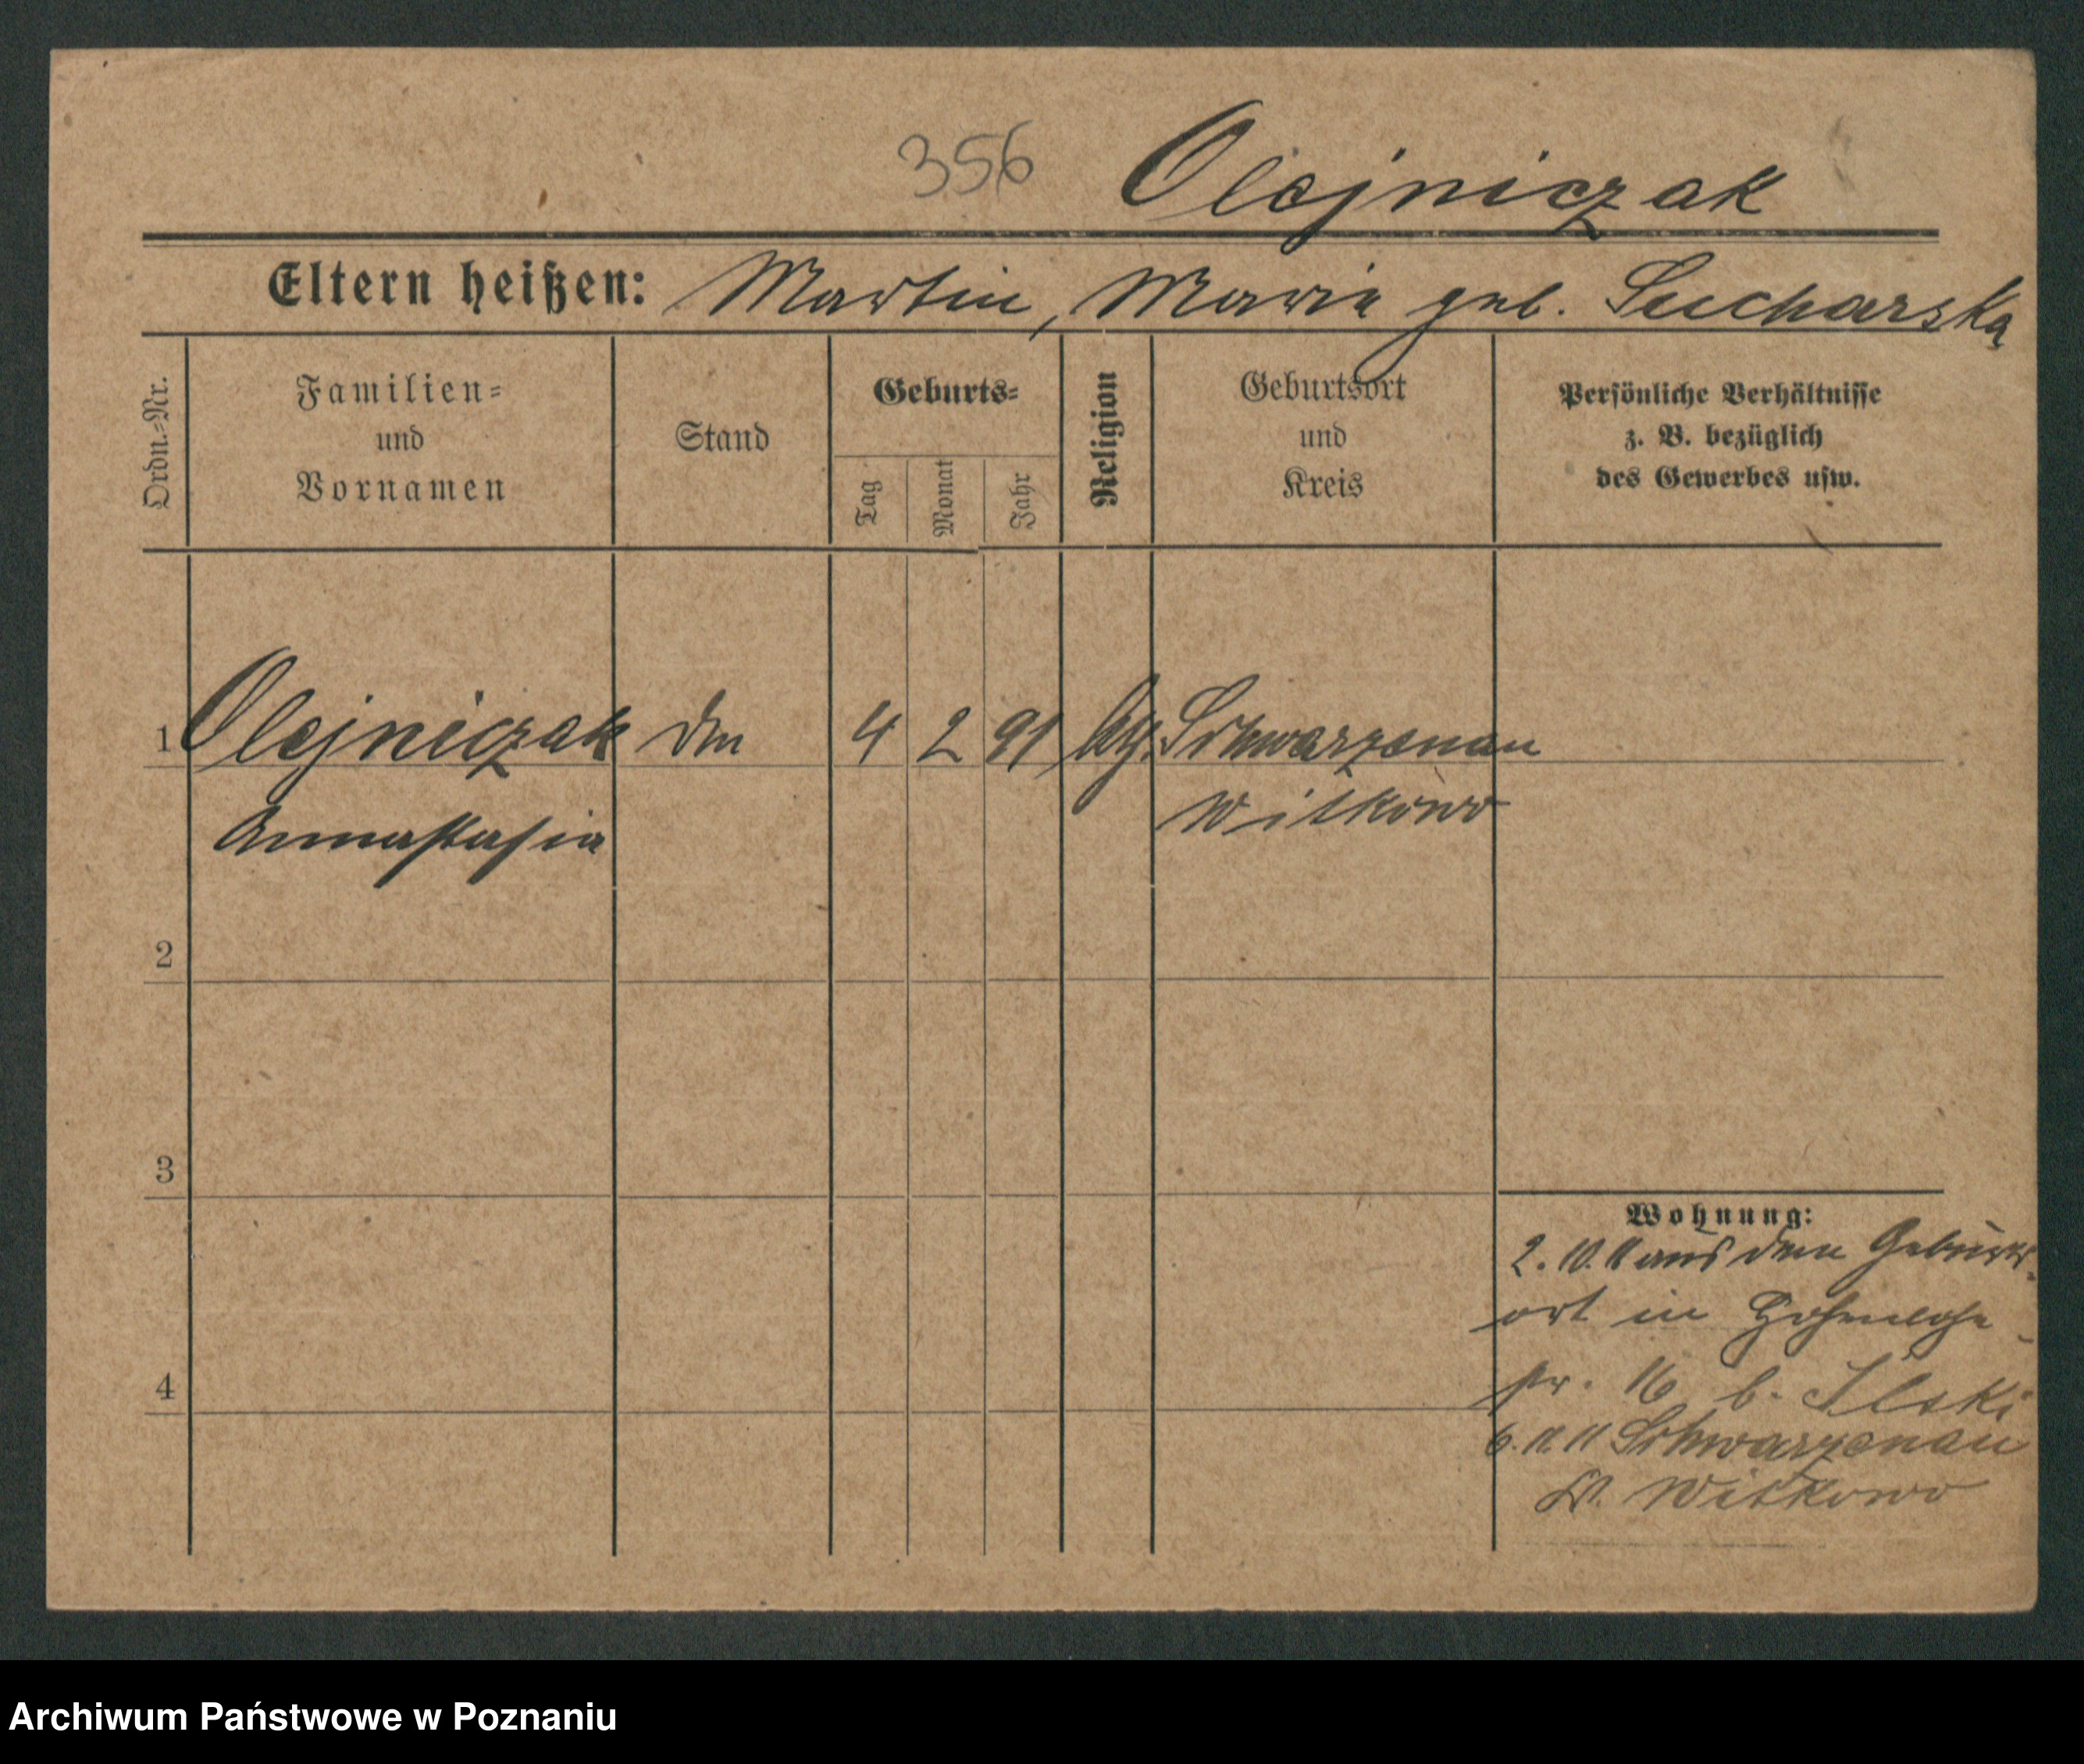 356 Olejniczak
Eltern heißen: Martin, Maria geb. Sucharska
Ordn.-Nr.
Familien-
und
Vornamen
Stand
Geburts-
Tag
Monat
Jahr
Religion
Geburtsort
und
Kreis
Persönliche Verhältnisse
z. B. bezüglich
des Gewerbes usw.
1 Olejniczak 4 2 91 Schwarzenau
Witkowo
Annastasia
2
3
4
Wohnung:
2. 10. 11 aus dem Geburts-
ort in Hohenlohe-
str. 16 b. Ilski
6. 11. 11 Schwarzenau
Witkowo
Archiwum Państwowe w Poznaniu